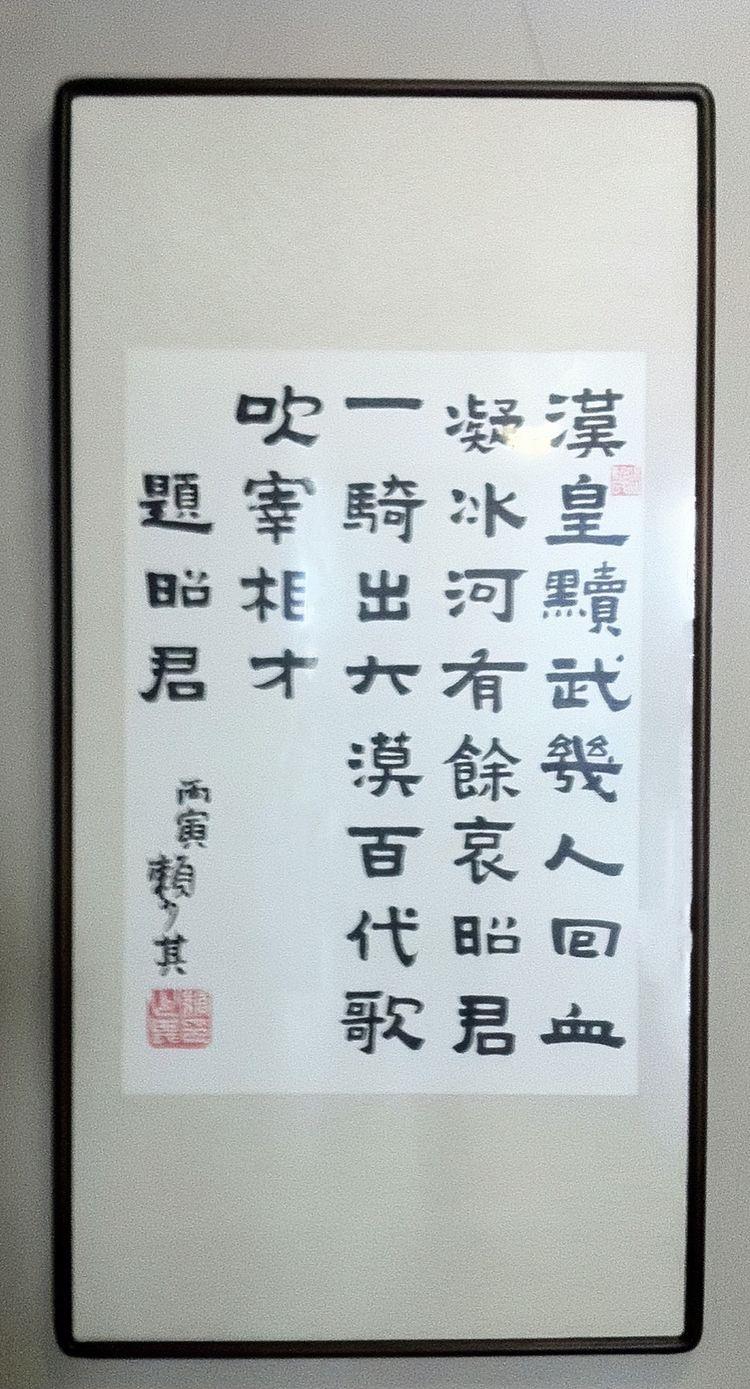 漢皇黷武幾人回血
凝冰河有餘哀昭君
一騎出大漠百代歌
吹宰相才
題昭君
丙寅賴少其